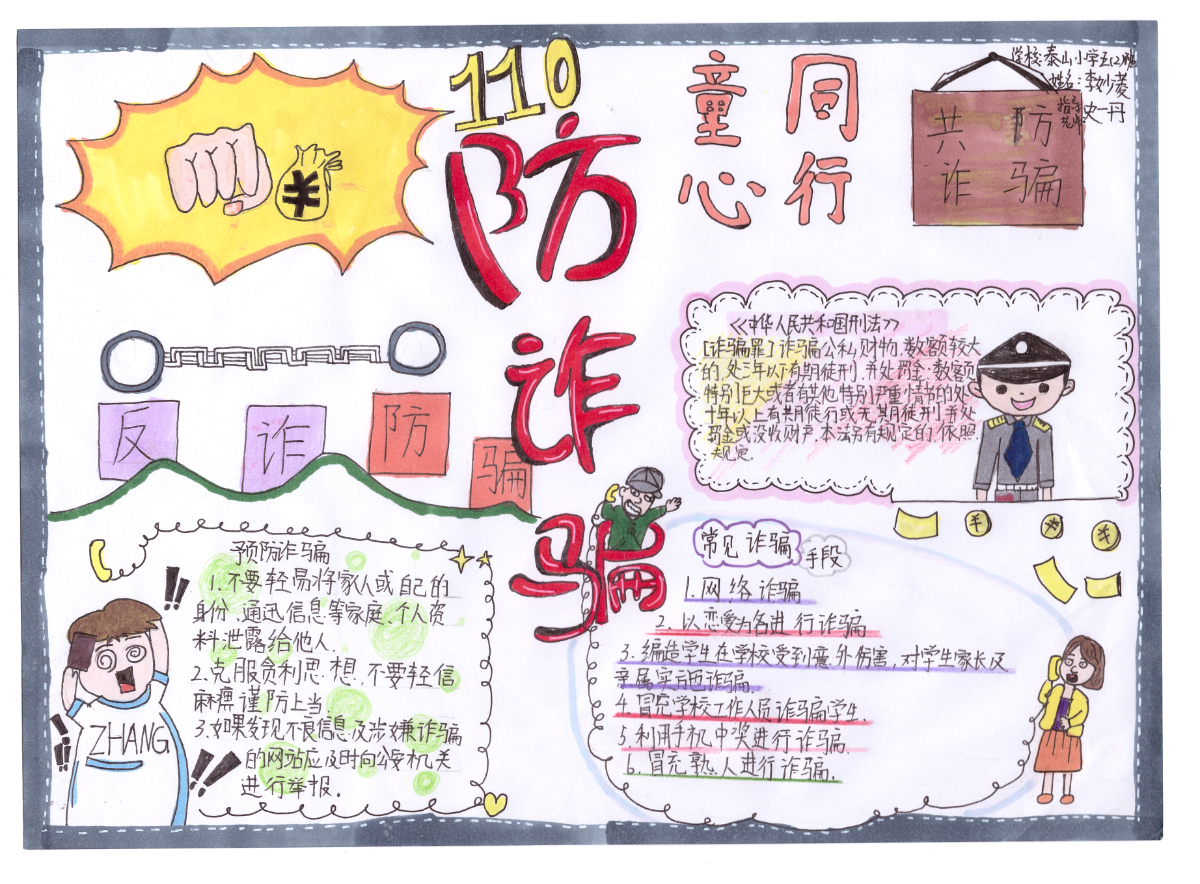 110
防
诈
骗
童心
同行
学校:泰山小学五(2)班
姓名:李妙菱
指导老师 史一丹
共防
诈骗
¥
反诈防骗
<<中华人民共和国刑法>>
[诈骗罪]诈骗公私财物,数额较大
的,处三年以下有期徒刑,并处罚金;数额
特别巨大或者有其他特别严重情节的处
十年以上有期徒行或无期徒刑并处
罚金或没收财产,本法另有规定的,依照
规定.
预防诈骗
1.不要轻易将家人或自己的
身份、通迅信息等家庭、个人资
料泄露给他人.
2.克服贪利思想,不要轻信
麻痹谨防上当.
3.如果发现不良信息及涉嫌诈骗
的网站应及时向公安机关
进行举报.
ZHANG
常见诈骗手段
1.网络诈骗
2.以恋爱为名进行诈骗
3.编造学生在学校受到意外伤害,对学生家长及
亲属实施诈骗.
4.冒充学校工作人员诈骗学生.
5.利用手机中奖进行诈骗.
6.冒充熟人进行诈骗.